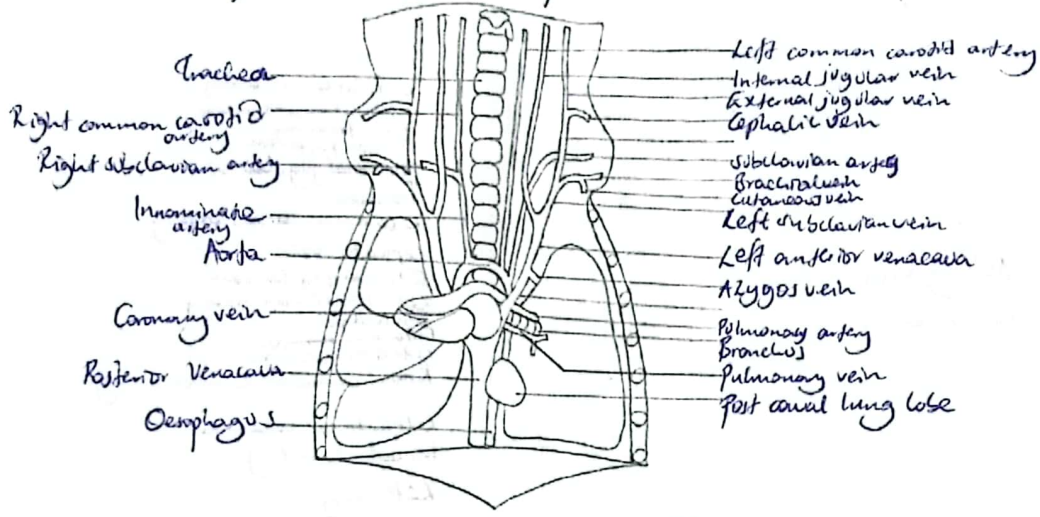 Trachea
Right common carotid
artery
Right subclavian artery
Innominate
artery
Aorta
Coronary vein
Posterior venacava
Oesophagus
Left common carotid artery
Internal jugular vein
External jugular vein
Cephalic vein
subclavian artery
Brachial vein
Cutaneous vein
Left subclavian vein
Left anterior venacava
Azygos vein
Pulmonary artery
Bronchus
Pulmonary vein
Post caval lung lobe